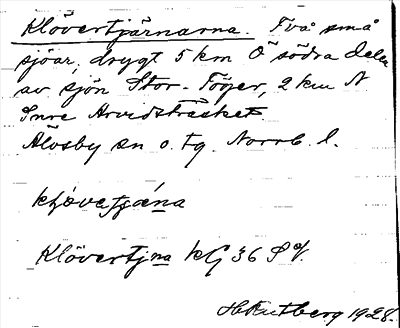 Klövertjärnarna. Två små
sjöar, drygt 5 km Ö södra delen
av sjön Stor-Töger, 2 km N
Inre Arvidsträsket
Älvsby sn o. tg. Norrb. l.
Klövertjna kG 36 SV.
H Rutberg 1928.